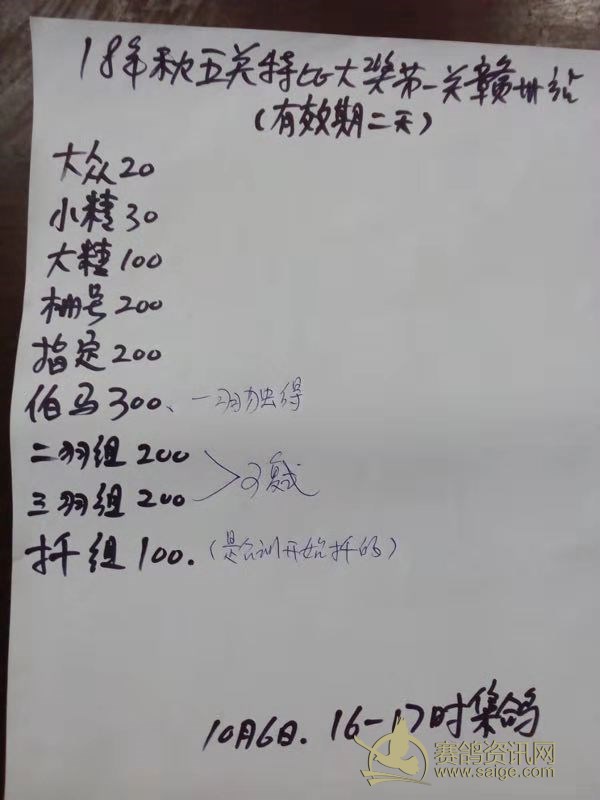 18年秋五关特比大奖第一关赣州站
(有效期二天)
大众20
小精30
大精100
棚号200
指定200
伯马300、一羽独得
二羽组200
三羽组200
可复式
扦组100.(是合训开始扦的)
10月6日.16-17时集鸽
赛鸽资讯网
www.saige.com